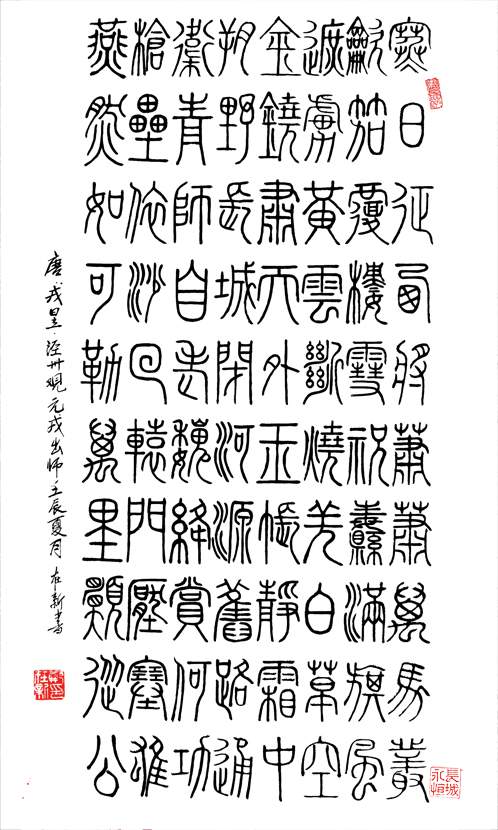 寒日征西將蕭蕭萬馬叢
龡笳覆樓雪祝纛滿旗風
遮虜黃雲斷燒羌白草空
金鐃肅天外玉帳靜霜中
朔野長城閉河源舊路通
衛青師自老魏絳賞何功
槍壘依沙回轅門壓塞雄
燕然如可勒萬里顠從公
唐戎昱·泾州觀元戎出师·壬辰夏月 在新書
長城永恒